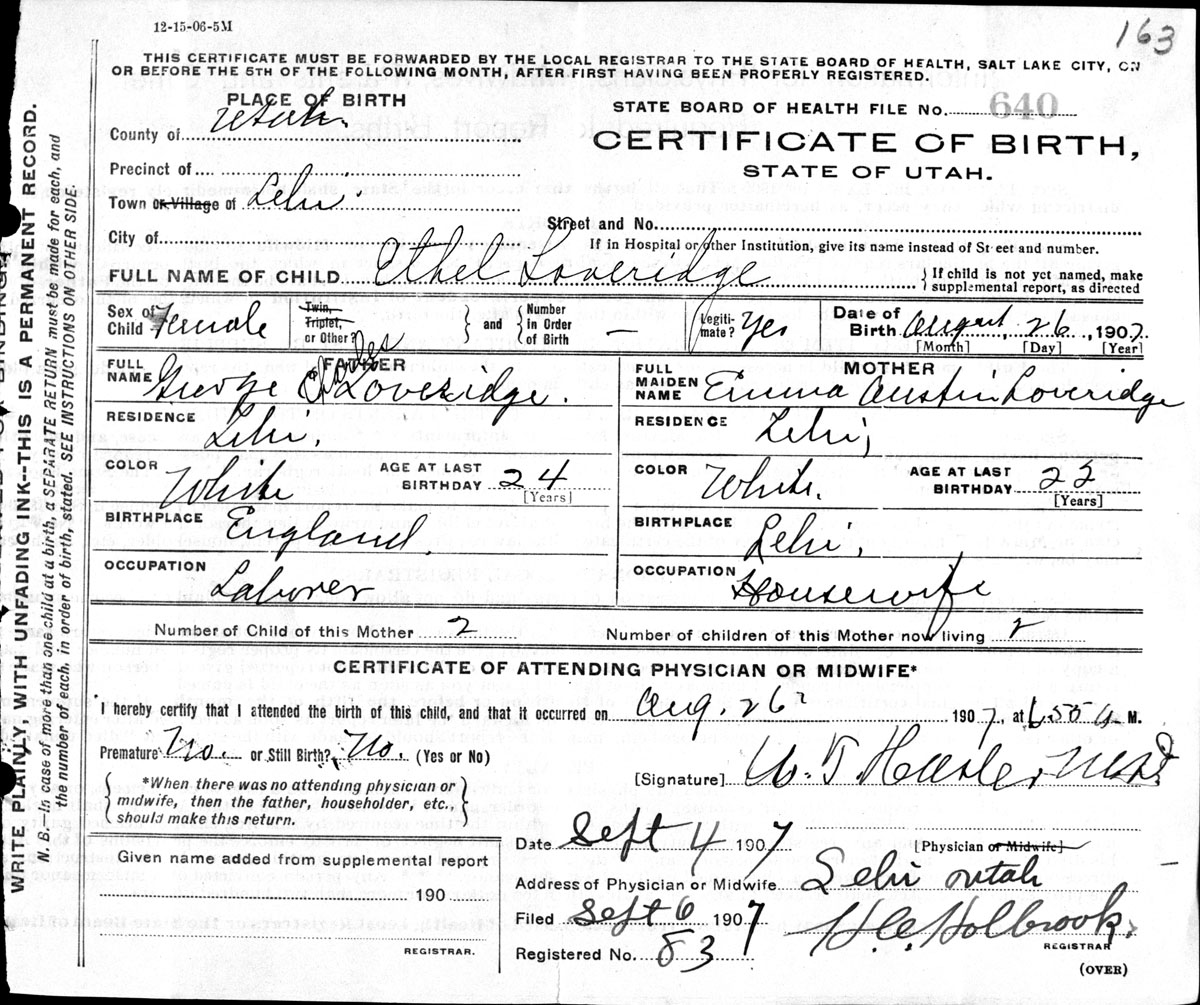 12-15-06-5M
163
THIS CERTIFICATE MUST BE FORWARDED BY THE LOCAL REGISTRAR TO THE STATE BOARD OF HEALTH, SALT LAKE CITY, ON
OR BEFORE THE 5TH OF THE FOLLOWING MONTH, AFTER FIRST HAVING BEEN PROPERLY REGISTERED.
WRITE PLAINLY, WITH UNFADING INK--THIS IS A PERMANENT RECORD.
N. B.--In case of more than one child at a birth, a SEPARATE RETURN must be made for each, and
the number of each, in order of birth, stated. SEE INSTRUCTIONS ON OTHER SIDE.
PLACE OF BIRTH
County of Utah
Precinct of
Town or Village of Lehi
City of
STATE BOARD OF HEALTH FILE No. 640
CERTIFICATE OF BIRTH,
STATE OF UTAH.
Street and No.
If in Hospital or other Institution, give its name instead of Street and number.
FULL NAME OF CHILD Ethel Loveridge
If child is not yet named, make
supplemental report, as directed
Sex of Child Female
Twin, Triplet, or Other?
and
Number in Order of Birth —
Legiti-mate? Yes
Date of Birth August 26, 1907.
[Month] [Day] [Year]
FATHER
FULL NAME George Charles Loveridge.
RESIDENCE Lehi,
COLOR White
AGE AT LAST BIRTHDAY 24
[Years]
BIRTHPLACE England.
OCCUPATION Laborer
MOTHER
FULL MAIDEN NAME Emma Austin Loveridge
RESIDENCE Lehi,
COLOR White.
AGE AT LAST BIRTHDAY
[Years]
BIRTHPLACE Lehi,
OCCUPATION Housewife
Number of Child of this Mother 2
Number of children of this Mother now living 2
CERTIFICATE OF ATTENDING PHYSICIAN OR MIDWIFE*
I hereby certify that I attended the birth of this child, and that it occurred on Aug. 26 1907, at 6.55 a M.
Premature No. or Still Birth? No. (Yes or No)
*When there was no attending physician or
midwife, then the father, householder, etc.,
should make this return.
[Signature] W. T.
[Physician or Midwife]
Date Sept 4 1907
Address of Physician or Midwife Lehi Utah
Filed Sept 6 1907
H. C. Holbrook.
REGISTRAR
Registered No. 83
(OVER)
Given name added from supplemental report
190
REGISTRAR.